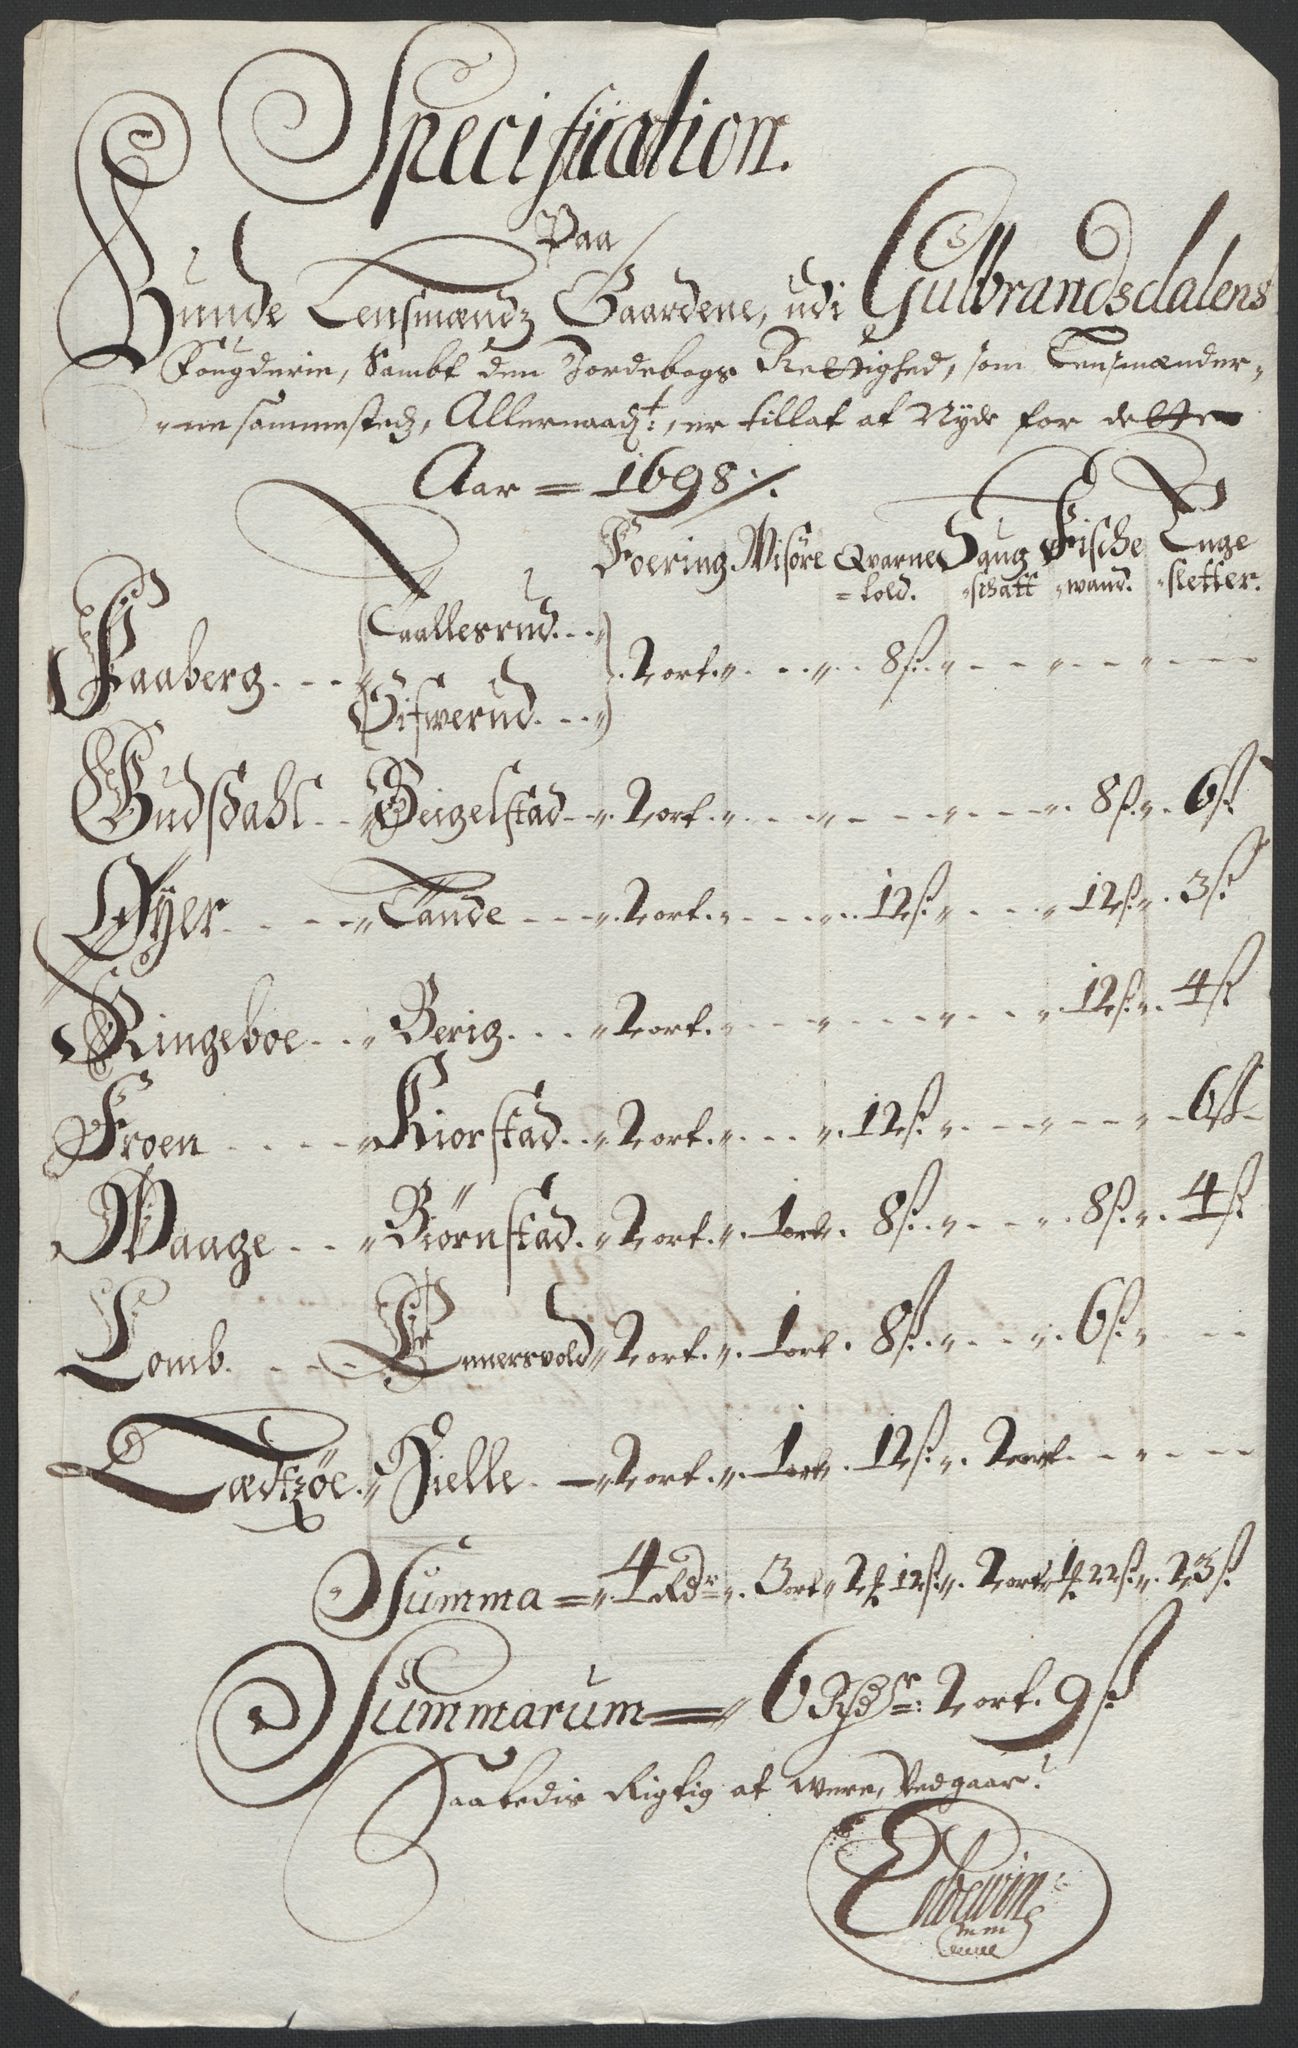 Specification.
Paa
Bunde Lensmændz Gaardene, udi Gulbrandsdalens
Fougderie, Sambt den Jordebogs Rettighed, som Lensmænder-
-ne sammestedz, Allernaadt:, er tillat at Nyde for dette
Aar = 1698 ./.
Foering. Wisöre Qvarne Saug Fische Enge
=told. =schatt =wand. =sletter.
Taallesrud. . .
Faaberg. . . . 2 ort. . . . 8 s. . . .
Sifwerud. . .
Gudsdahl . . Seigelstad . . 2 ort. . . . 8 s. . 6 s.
Øyer . . . Tande . . . 2 ort. . . . 12 s. . . . 12 s. . 3 s.
Ringeboe . . Berig. . . . 2 ort. . . . 12 s. . 4 s.
Froen . . . Kiorstad. . 2 ort. . . . 12 s. . . . 6 s.
Waage . . . Biørnstad. . 2 ort. . 1 ort. . 8 s. . . . 8 s. . 4 s.
Lomb. . . . Ennersvold 2 ort. . 1 ort. 8 s. . . . 6 s. . . .
Lædtzöe. . Hielle. . 2 ort. . 1 ort. . 12 s. . 2 ort . . .
Summa = 4 Rdr . 3 ort . 2 ß 12 s. . 2 ort . 1 ß 22 s. . 23 s.
Summarum = 6 Rdr: 2 ort. 9 s
Saaledis Rigtig at were, Vedgaar.